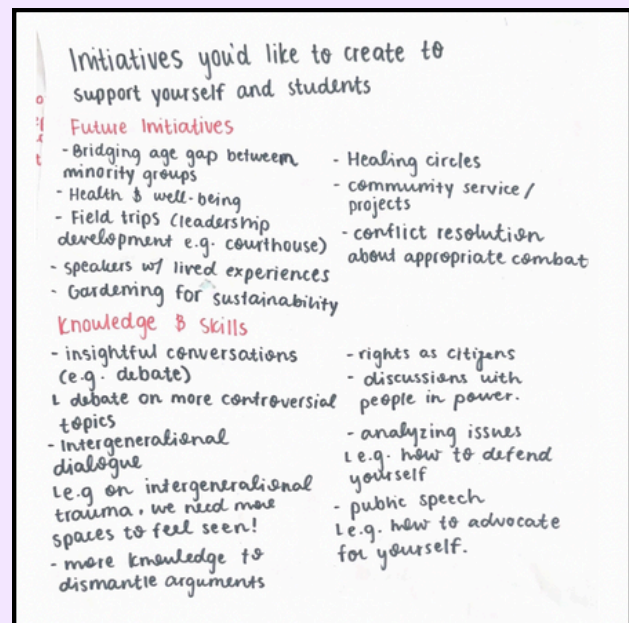 Initiatives you'd like to create to
support yourself and students
Future Initiatives
- Bridging age gap between
minority groups
- Health & well-being
- Field trips (leadership
development e.g. courthouse)
- speakers w/ lived experiences
- Gardening for sustainability
- Healing circles
- community service /
projects
- conflict resolution
about appropriate combat
Knowledge & Skills
- insightful conversations
(e.g. debate)
↳ debate on more controversial
topics
- Intergenerational
dialogue
↳ e.g on intergenerational
trauma, we need more
spaces to feel seen!
- more knowledge to
dismantle arguments
- rights as citizens
- discussions with
people in power.
- analyzing issues
↳ e.g. how to defend
yourself
- public speech
↳ e.g. how to advocate
for yourself.